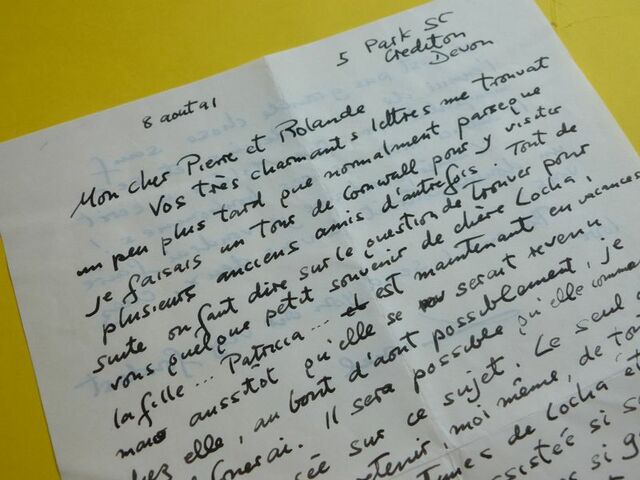 5 Park St
Crediton
Devon
8 aout 91
Mon cher Pierre et Rolande
Vos très charmants lettres me trouvat
un peu plus tard que normalment parseque
je faisais un tour de Cornwall pour y visiter
plusieurs anciens amis d'autrefois. Tout de
suite on faut dire sur le question de trouver pour
vous quelque petit souvenir de chère Locha,
la fille... Patricia... est maintenant en vacances
mais aussitôt qu'elle se serait revenu
chez elle, au bout d'aout possiblement, je
Il sera possible qu'elle
sur ce sujet. Le seul
moi même, de
de Locha
si
si